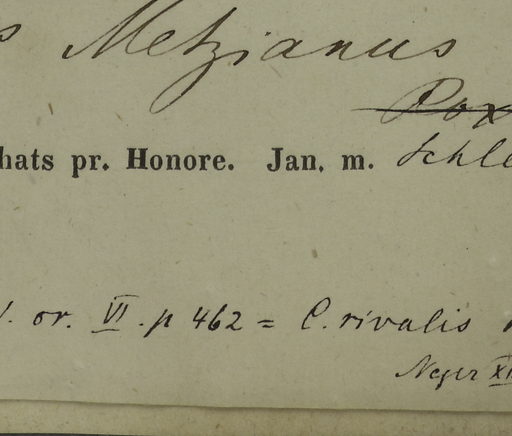 s Metzianus
Pox
hats pr. Honore. Jan. m. Schle
l. or. VI. p 462 = C. rivalis
Neger XI